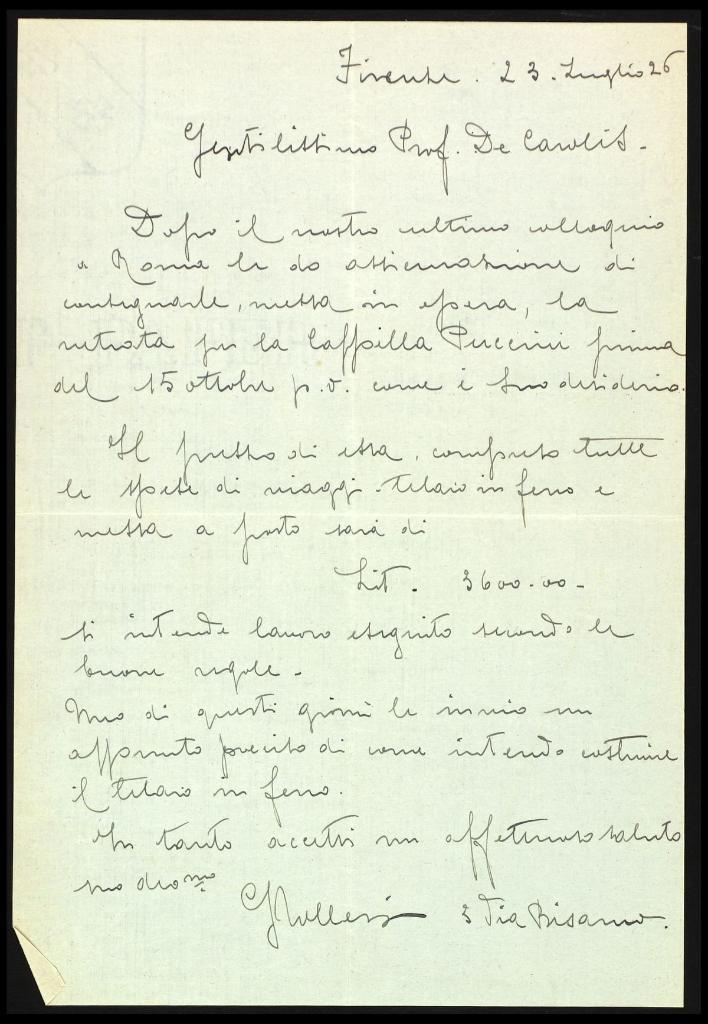 Firenze. 23. Luglio 26
Gentilissimo Prof. De Carolis -
Dopo il nostro ultimo colloquio
a Roma le do assicurazione di
consegnarle, messa in opera, la
vetrata per la Cappilla Puccini prima
del 15 ottobre p.v. come è suo desiderio.
Il prezzo di essa, compreso tutte
le spese di viaggi - telaio in ferro e
messa a posto sarà di
Lit. 3600.00 -
si intende lavoro eseguito secondo le
buone regole -
Uno di questi giorni le invio un
appunto preciso di come intendo costruire
il telaio in ferro.
In tanto accetti un affettuoso saluto
suo dev mo
3 Via Bisarno.